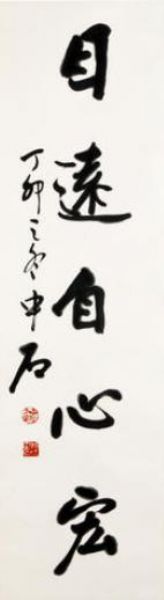 目遠自心宏
丁卯之冬申石